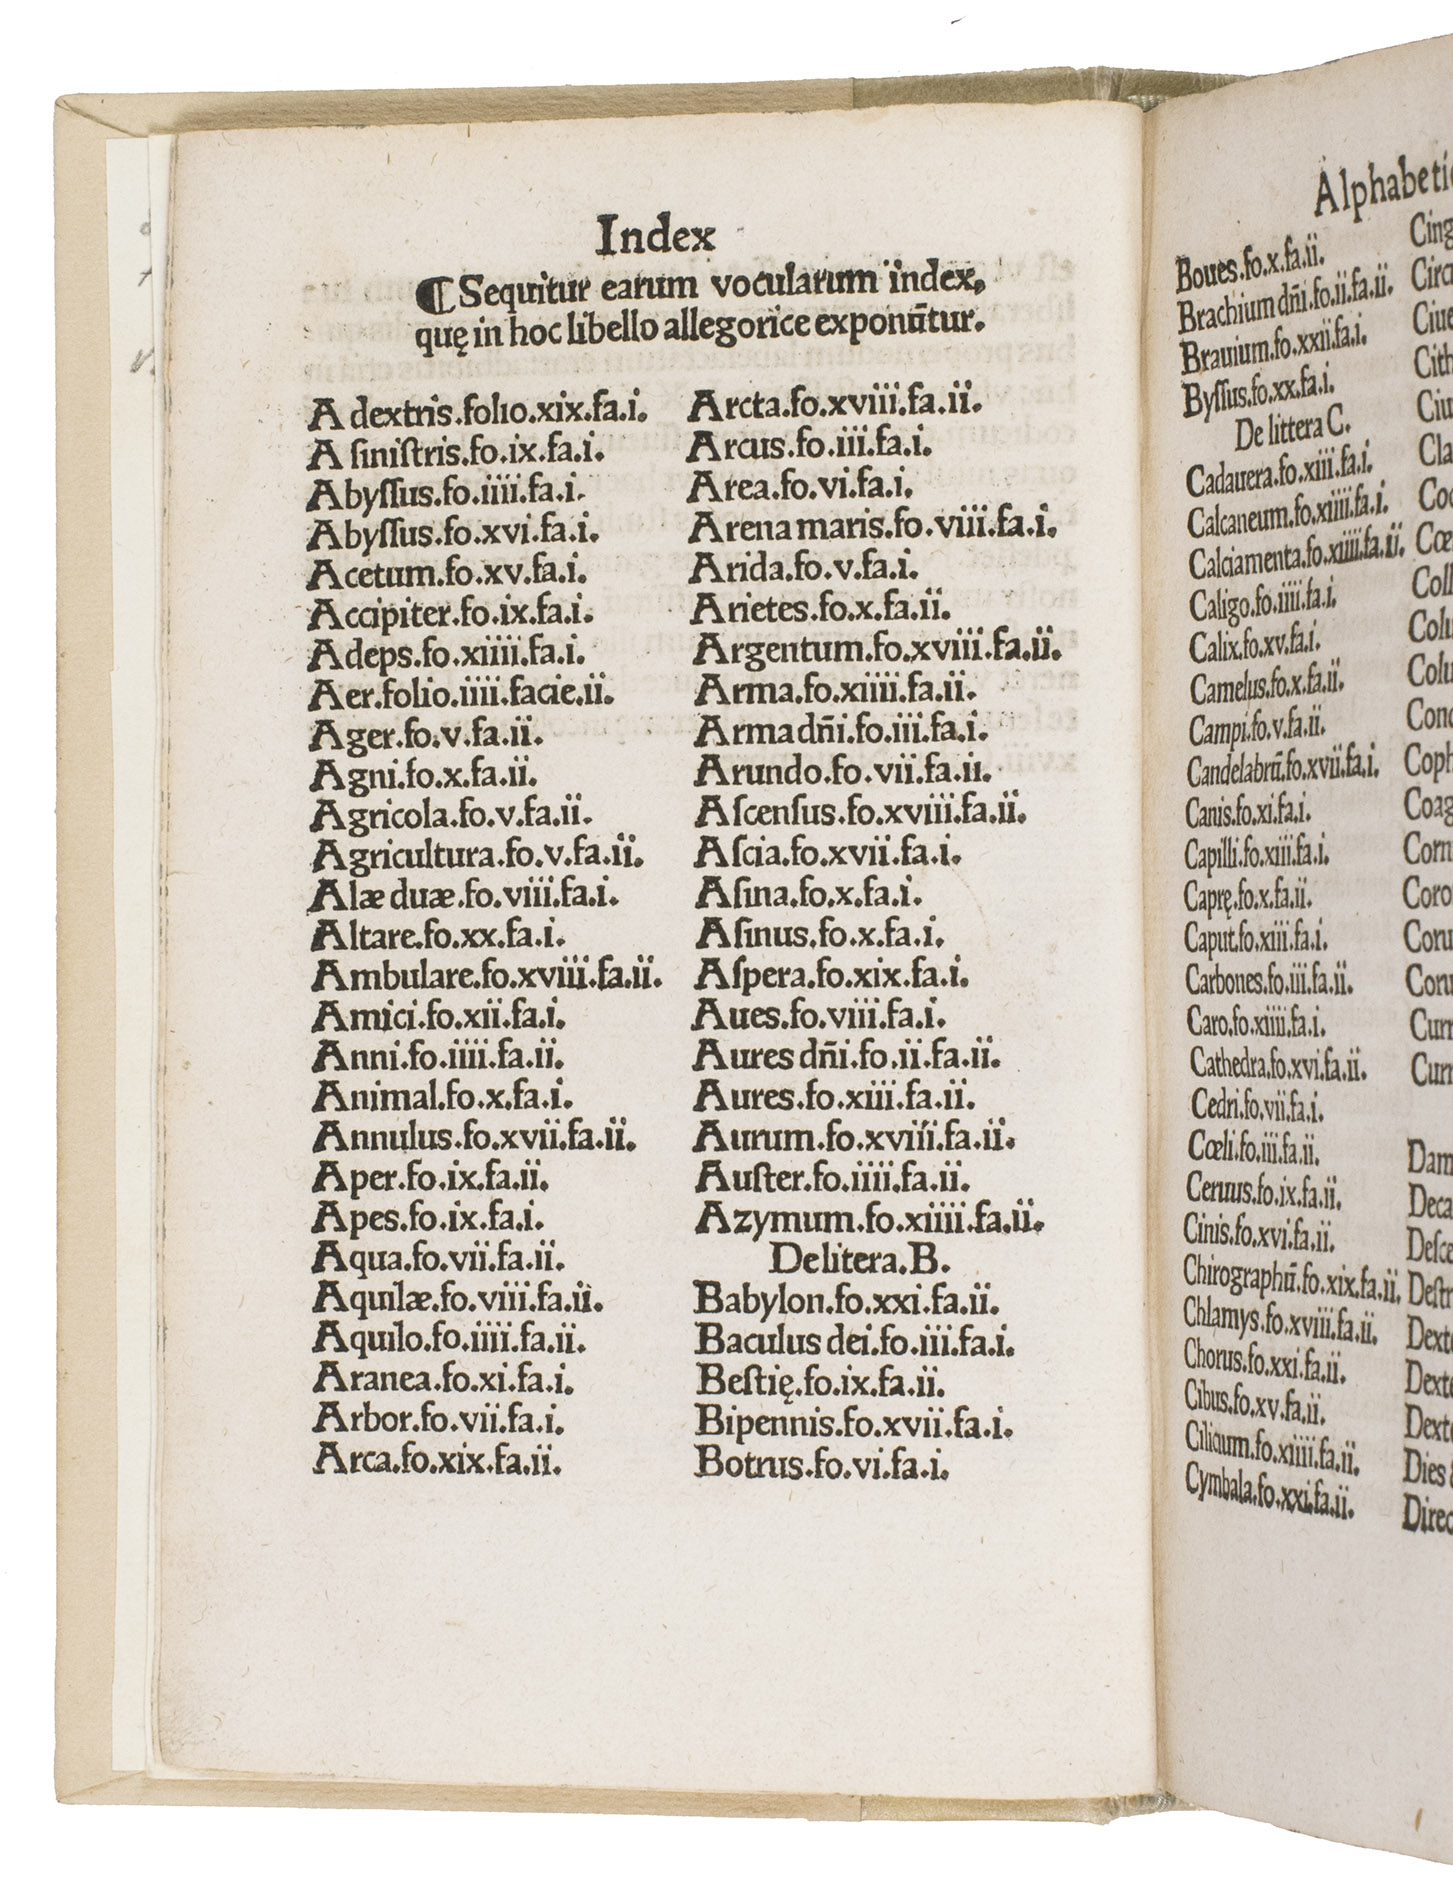 Index
¶Sequitur earum vocularum index,
quę in hoc libello allegorice exponūtur.
A dextris.folio.xix.fa.i.
A siniſtris.fo.ix.fa.i.
Abyſſus.fo.iiii.fa.i.
Abyſſus.fo.xvi.fa.i.
Acetum.fo.xv.fa.i.
Accipiter.fo.ix.fa.i.
Adeps.fo.xiiii.fa.i.
Aer.folio.iiii.facie.ii.
Ager.fo.v.fa.ii.
Agni.fo.x.fa.ii.
Agricola.fo.v.fa.ii.
Agricultura.fo.v.fa.ii.
Alæ duæ.fo.viii.fa.i.
Altare.fo.xx.fa.i.
Ambulare.fo.xviii.fa.ii.
Amici.fo.xii.fa.i.
Anni.fo.iiii.fa.ii.
Animal.fo.x.fa.i.
Annulus.fo.xvii.fa.ii.
Aper.fo.ix.fa.ii.
Apes.fo.ix.fa.i.
Aqua.fo.vii.fa.ii.
Aquilæ.fo.viii.fa.ii.
Aquilo.fo.iiii.fa.ii.
Aranea.fo.xi.fa.i.
Arbor.fo.vii.fa.i.
Arca.fo.xix.fa.ii.
Arcta.fo.xviii.fa.ii.
Arcus.fo.iii.fa.i.
Area.fo.vi.fa.i.
Arena maris.fo.viii.fa.i.
Arida.fo.v.fa.i.
Arietes.fo.x.fa.ii.
Argentum.fo.xviii.fa.ii.
Arma.fo.xiiii.fa.ii.
Arma dn̄i.fo.iii.fa.i.
Arundo.fo.vii.fa.ii.
Aſcenſus.fo.xviii.fa.ii.
Aſcia.fo.xvii.fa.i.
Aſina.fo.x.fa.i.
Aſinus.fo.x.fa.i.
Aſpera.fo.xix.fa.i.
Aues.fo.viii.fa.i.
Aures dn̄i.fo.ii.fa.ii.
Aures.fo.xiii.fa.ii.
Aurum.fo.xviii.fa.ii.
Auſter.fo.iiii.fa.ii.
Azymum.fo.xiiii.fa.ii.
De litera.B.
Babylon.fo.xxi.fa.ii.
Baculus dei.fo.iii.fa.i.
Beſtię.fo.ix.fa.ii.
Bipennis.fo.xvii.fa.i.
Botrus.fo.vi.fa.i.
Boues.fo.x.fa.ii.
Brachium dn̄i.fo.ii.fa.ii.
Brauium.fo.xxii.fa.i.
Byſſus.fo.xx.fa.i.
De littera C.
Cadauera.fo.xiii.fa.i.
Calcaneum.fo.xiiii.fa.i.
Calciamenta.fo.xiiii.fa.ii.
Caligo.fo.iiii.fa.i.
Calix.fo.xv.fa.i.
Camelus.fo.x.fa.ii.
Campi.fo.v.fa.ii.
Candelabrū.fo.xvii.fa.i.
Canis.fo.xi.fa.i.
Capilli.fo.xiii.fa.i.
Caprę.fo.x.fa.ii.
Caput.fo.xiii.fa.i.
Carbones.fo.iii.fa.ii.
Caro.fo.xiiii.fa.i.
Cathedra.fo.xvi.fa.ii.
Cedri.fo.vii.fa.i.
Cœli.fo.iii.fa.ii.
Ceruus.fo.ix.fa.ii.
Cinis.fo.xvi.fa.ii.
Chirographū.fo.xix.fa.ii.
Chlamys.fo.xviii.fa.ii.
Chorus.fo.xxi.fa.ii.
Cibus.fo.xv.fa.ii.
Cilicium.fo.xiiii.fa.ii.
Cymbala.fo.xxi.fa.ii.